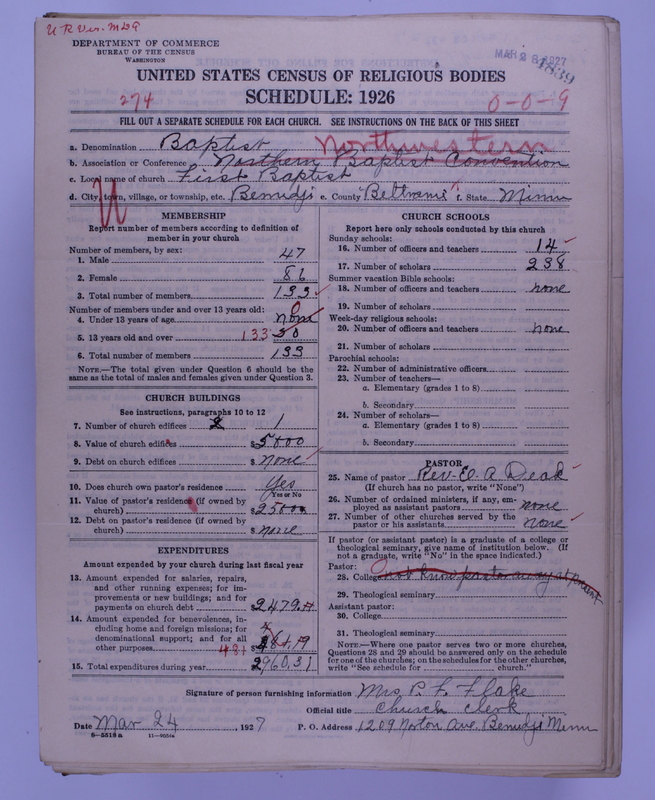 U R Ver. MDG
DEPARTMENT OF COMMERCE
BUREAU OF THE CENSUS
WASHINGTON
MAR 28 1927
1839
UNITED STATES CENSUS OF RELIGIOUS BODIES
SCHEDULE: 1926
274
0-0-9
FILL OUT A SEPARATE SCHEDULE FOR EACH CHURCH. SEE INSTRUCTIONS ON THE BACK OF THIS SHEET
a. Denomination Baptist Northwestern
b. Association or Conference Northern Baptist Convention
c. Local name of church First Baptist
d. City, town, village, or township, etc. Bemidji e. County Beltrami f. State Minn
U
MEMBERSHIP
Report number of members according to definition of
member in your church
Number of members, by sex:
1. Male 47
2. Female 86
3. Total number of members 133
Number of members under and over 13 years old:
4. Under 13 years of age none 0
5. 13 years old and over 133
6. Total number of members 133
NOTE.—The total given under Question 6 should be the
same as the total of males and females given under Question 3.
CHURCH BUILDINGS
See instructions, paragraphs 10 to 12
7. Number of church edifices 1
8. Value of church edifices $5000
9. Debt on church edifices $None
10. Does church own pastor's residence Yes
Yes or No
11. Value of pastor's residence (if owned by
church) $2500
12. Debt on pastor's residence (if owned by
church) $None
EXPENDITURES
Amount expended by your church during last fiscal year
13. Amount expended for salaries, repairs,
and other running expenses; for im-
provements or new buildings; and for
payments on church debt 2479.
14. Amount expended for benevolences, in-
cluding home and foreign missions; for
denominational support; and for all
other purposes 481 $481.19
15. Total expenditures during year 2960.31
CHURCH SCHOOLS
Report here only schools conducted by this church
Sunday schools:
16. Number of officers and teachers 14
17. Number of scholars 238
Summer vacation Bible schools:
18. Number of officers and teachers none
19. Number of scholars
Week-day religious schools:
20. Number of officers and teachers none
21. Number of scholars
Parochial schools:
22. Number of administrative officers
23. Number of teachers—
a. Elementary (grades 1 to 8)
b. Secondary
24. Number of scholars—
a. Elementary (grades 1 to 8)
b. Secondary
PASTOR
25. Name of pastor Rev. A Deak
(If church has no pastor, write "None")
26. Number of ordained ministers, if any, em-
ployed as assistant pastors none
27. Number of other churches served by the
pastor or his assistants none
If pastor (or assistant pastor) is a graduate of a college or
theological seminary, give name of institution below. (If
not a graduate, write "No" in the space indicated.)
Pastor:
28. College not know pastor away at
29. Theological seminary
Assistant pastor:
30. College
31. Theological seminary
NOTE.—Where one pastor serves two or more churches,
Questions 28 and 29 should be answered only on the schedule
for one of the churches; on the schedules for the other churches,
write "See schedule for church."
Signature of person furnishing information Mrs. P. L. Flake
Official title Church Clerk
Date Mar 24, 1927 P. O. Address 1209 Norton Ave. Bemidji Minn
8—5513 a